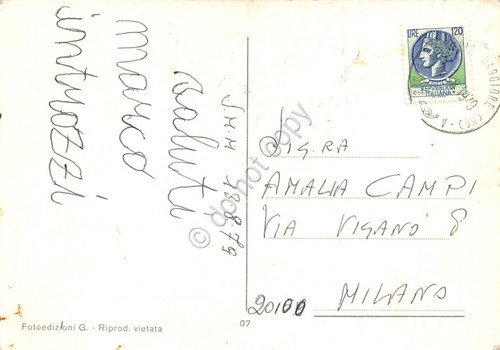 S.M.M. 13.8.79
Saluti
marco
intuozzi
LIRE 120
REPUBBLICA
ITALIANA
MAGGIORE
SIG.RA
AMALIA CAMPI
VIA VIGANÒ 8
20100 MILANO
Fotoedizioni G. - Riprod. vietata
07
do not copy